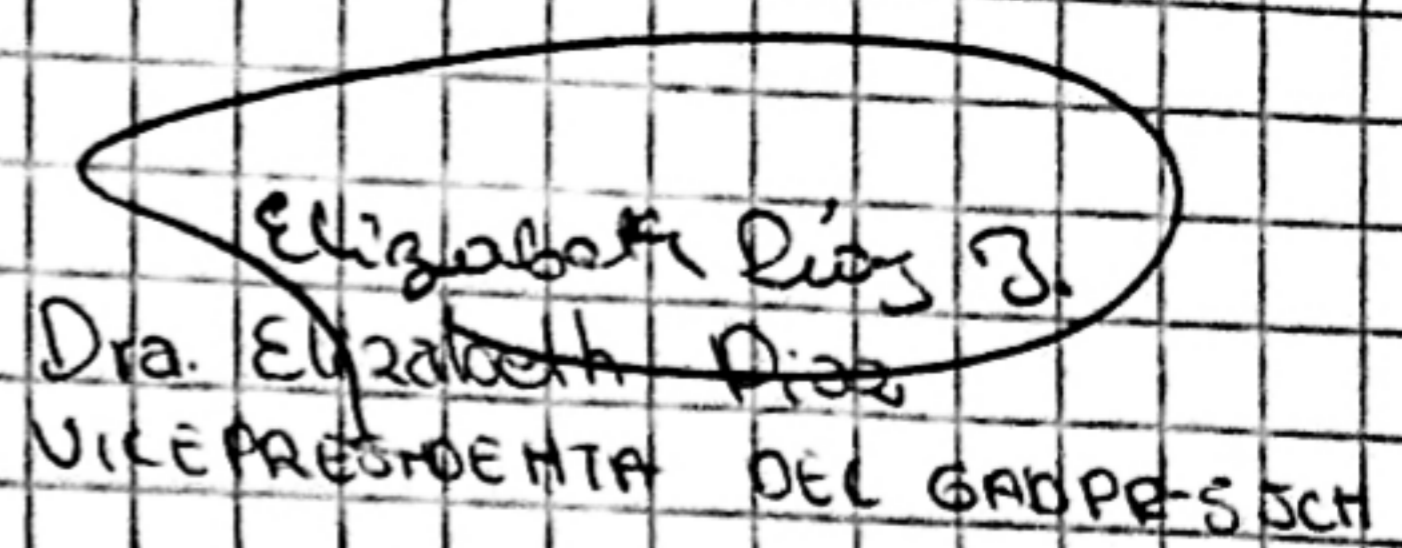 Elizabeth Díaz J.
Dra. Elizabeth Díaz
VICEPRESIDENTA DEL GADPR-SJCH